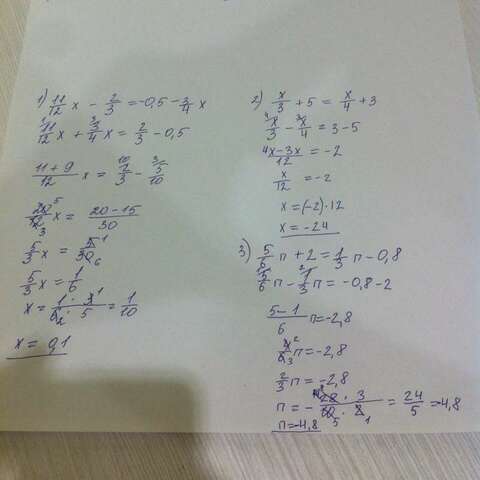 1) 11/12 x - 2/3 = -0,5 - 3/4 x
11/12 x + 3/4 x = 2/3 - 0,5
(11+9)/12 x = 2/3 - 5/10
20/12 x = (20-15)/30
5/3 x = 5/30
5/3 x = 1/6
x = (1·3)/(6·5) = 1/10
x = 0,1
2) x/3 + 5 = x/4 + 3
x/3 - x/4 = 3-5
(4x-3x)/12 = -2
x/12 = -2
x = (-2)·12
x = -24
3) 5/6 п + 2 = 1/3 п - 0,8
5/6 п - 1/3 п = -0,8-2
(5-1)/6 п = -2,8
4/6 п = -2,8
2/3 п = -2,8
= 24/5 = -4,8
п = -4,8